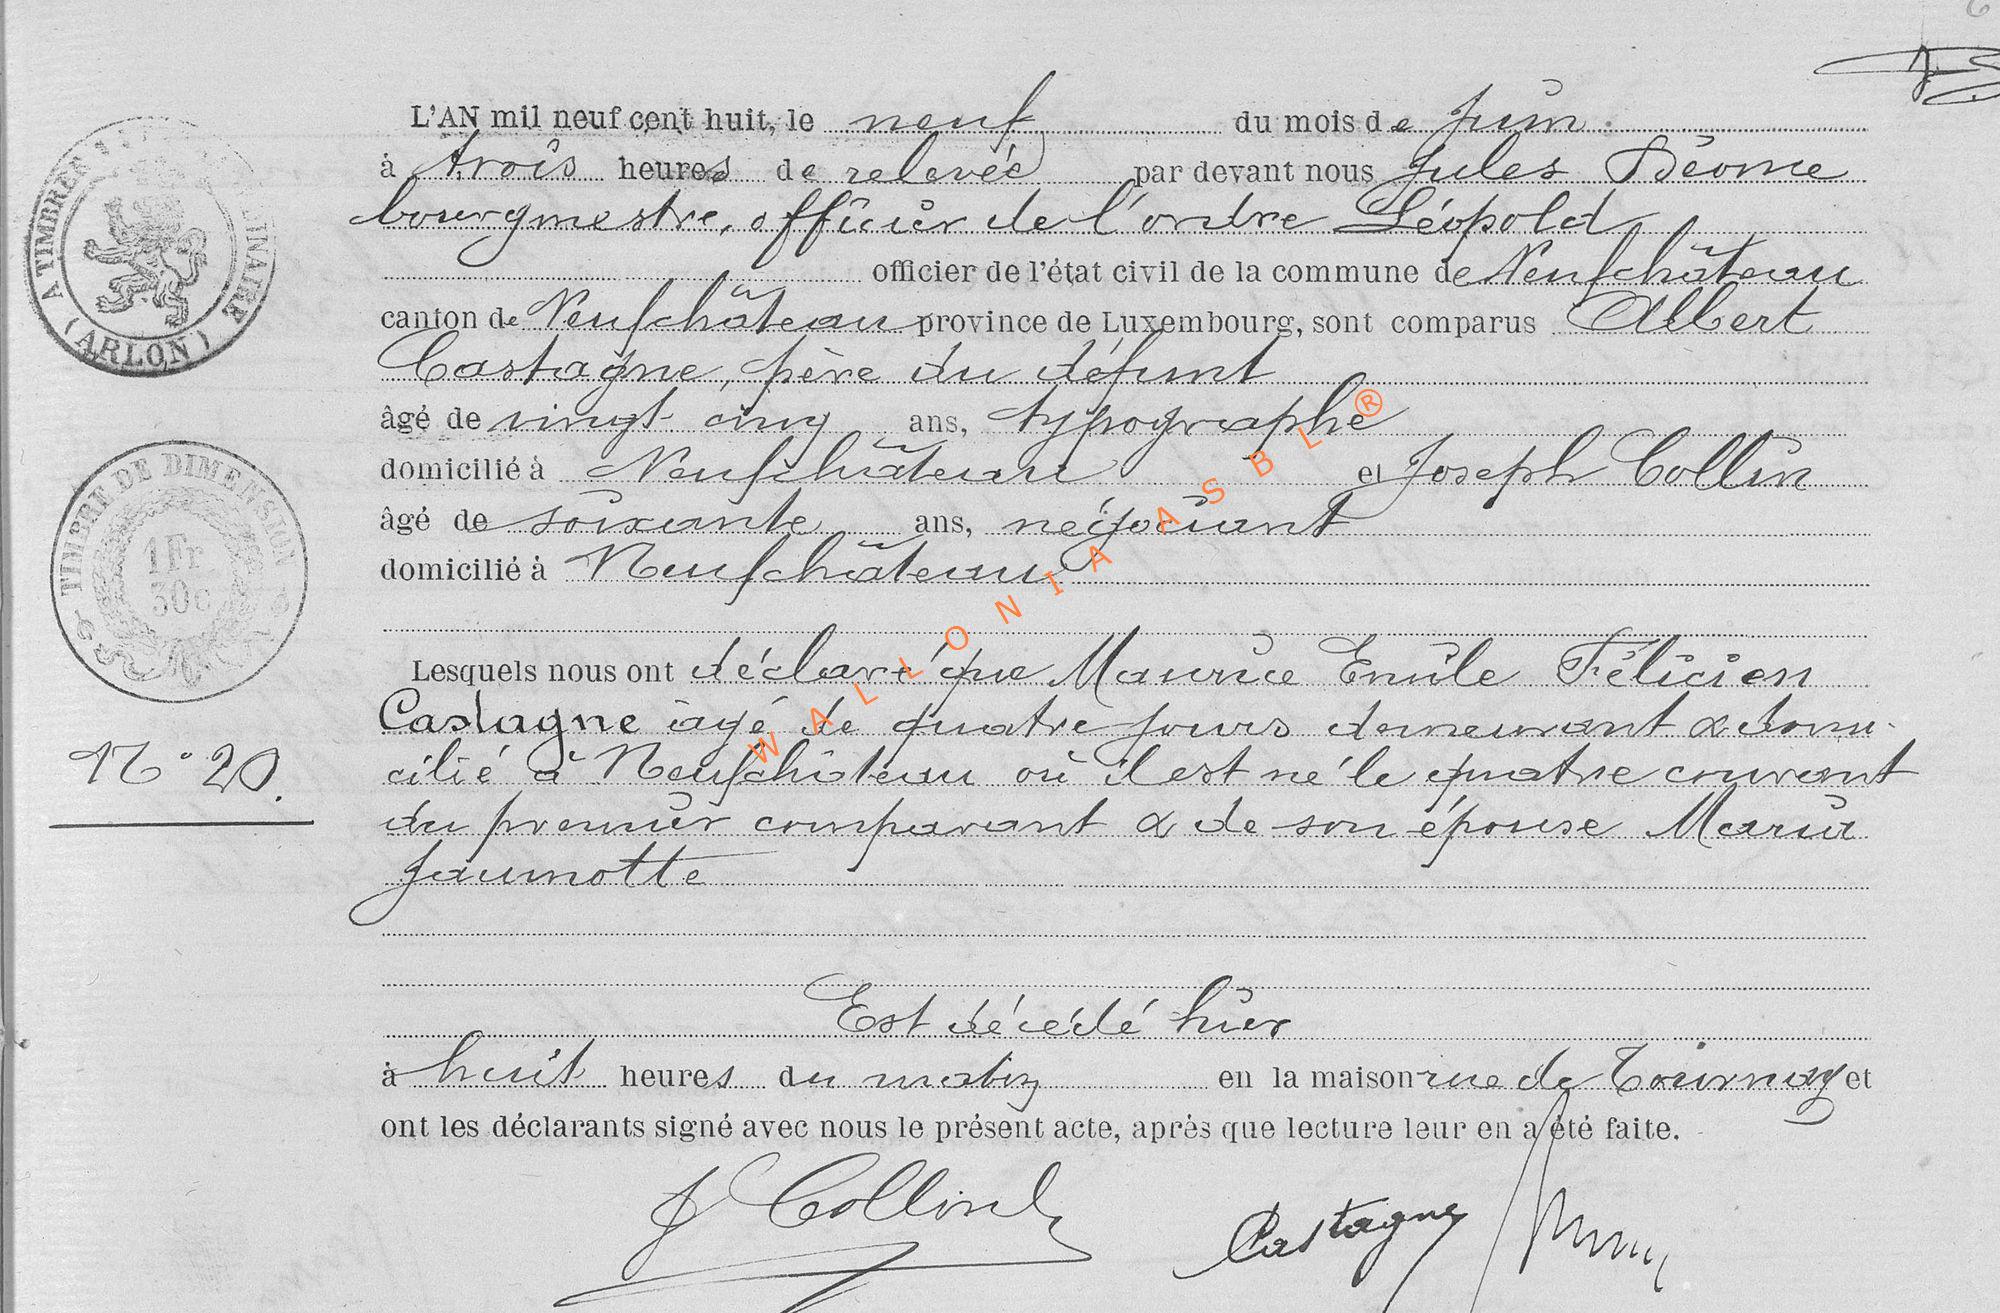 L'AN mil neuf cent huit, le neuf du mois de Juin
à trois heures de relevée par devant nous Jules
bourgmestre, officier de l'ordre Léopold
officier de l'état civil de la commune de Neufchâteau
canton de Neufchâteau province de Luxembourg, sont comparus Albert
Castagne, père du défunt
âgé de vingt cinq ans, typographe
domicilié à Neufchâteau et Joseph Collin
âgé de soixante ans, négociant
domicilié à Neufchâteau
Lesquels nous ont déclaré que Maurice Emile Félicien
Castagne âgé de quatre jours demeurant & domi-
cilié à Neufchâteau où il est né le quatre courant
du premier comparant & de son épouse Maria
Jaumotte
Est décédé hier
à huit heures du matin en la maison rue de Tournay et
ont les déclarants signé avec nous le présent acte, après que lecture leur en a été faite.
J Collin
Castagne
N° 20.
A TIMBRE
(ARLON)
TIMBRE DE DIMENSION
1 Fr
30c
WALLONIA ASBL ®